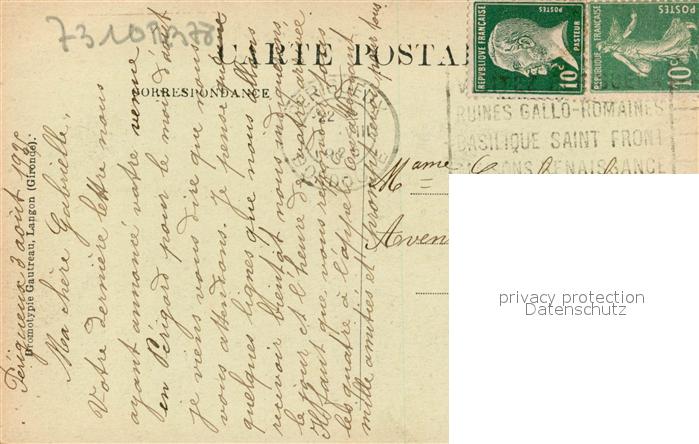 73108378
CARTE POSTA
CORRESPONDANCE
Bromotypie Gautreau, Langon (Gironde).
Périgueux 3 août 192
Ma chère Gabrielle,
Votre dernière lettre nous
ayant annoncé votre venue
en Périgord pour le mois d'août
je viens vous dire que nous
vous attendons. Je pense que
quelques lignes que nous allons
recevoir bientôt nous indiquerons
le jour et l'heure de votre arrivée
Il faut que vous répondiez tous
les quatre à l'appel
mille amitiés et pour tous
Mame
Aven
REPUBLIQUE FRANÇAISE
POSTES
PASTEUR
10c
REPUBLIQUE FRANÇAISE
POSTES
10c
22
RUINES GALLO-ROMAINES
BASILIQUE SAINT FRONT
MAISONS RENAISSANCE
privacy protection
Datenschutz